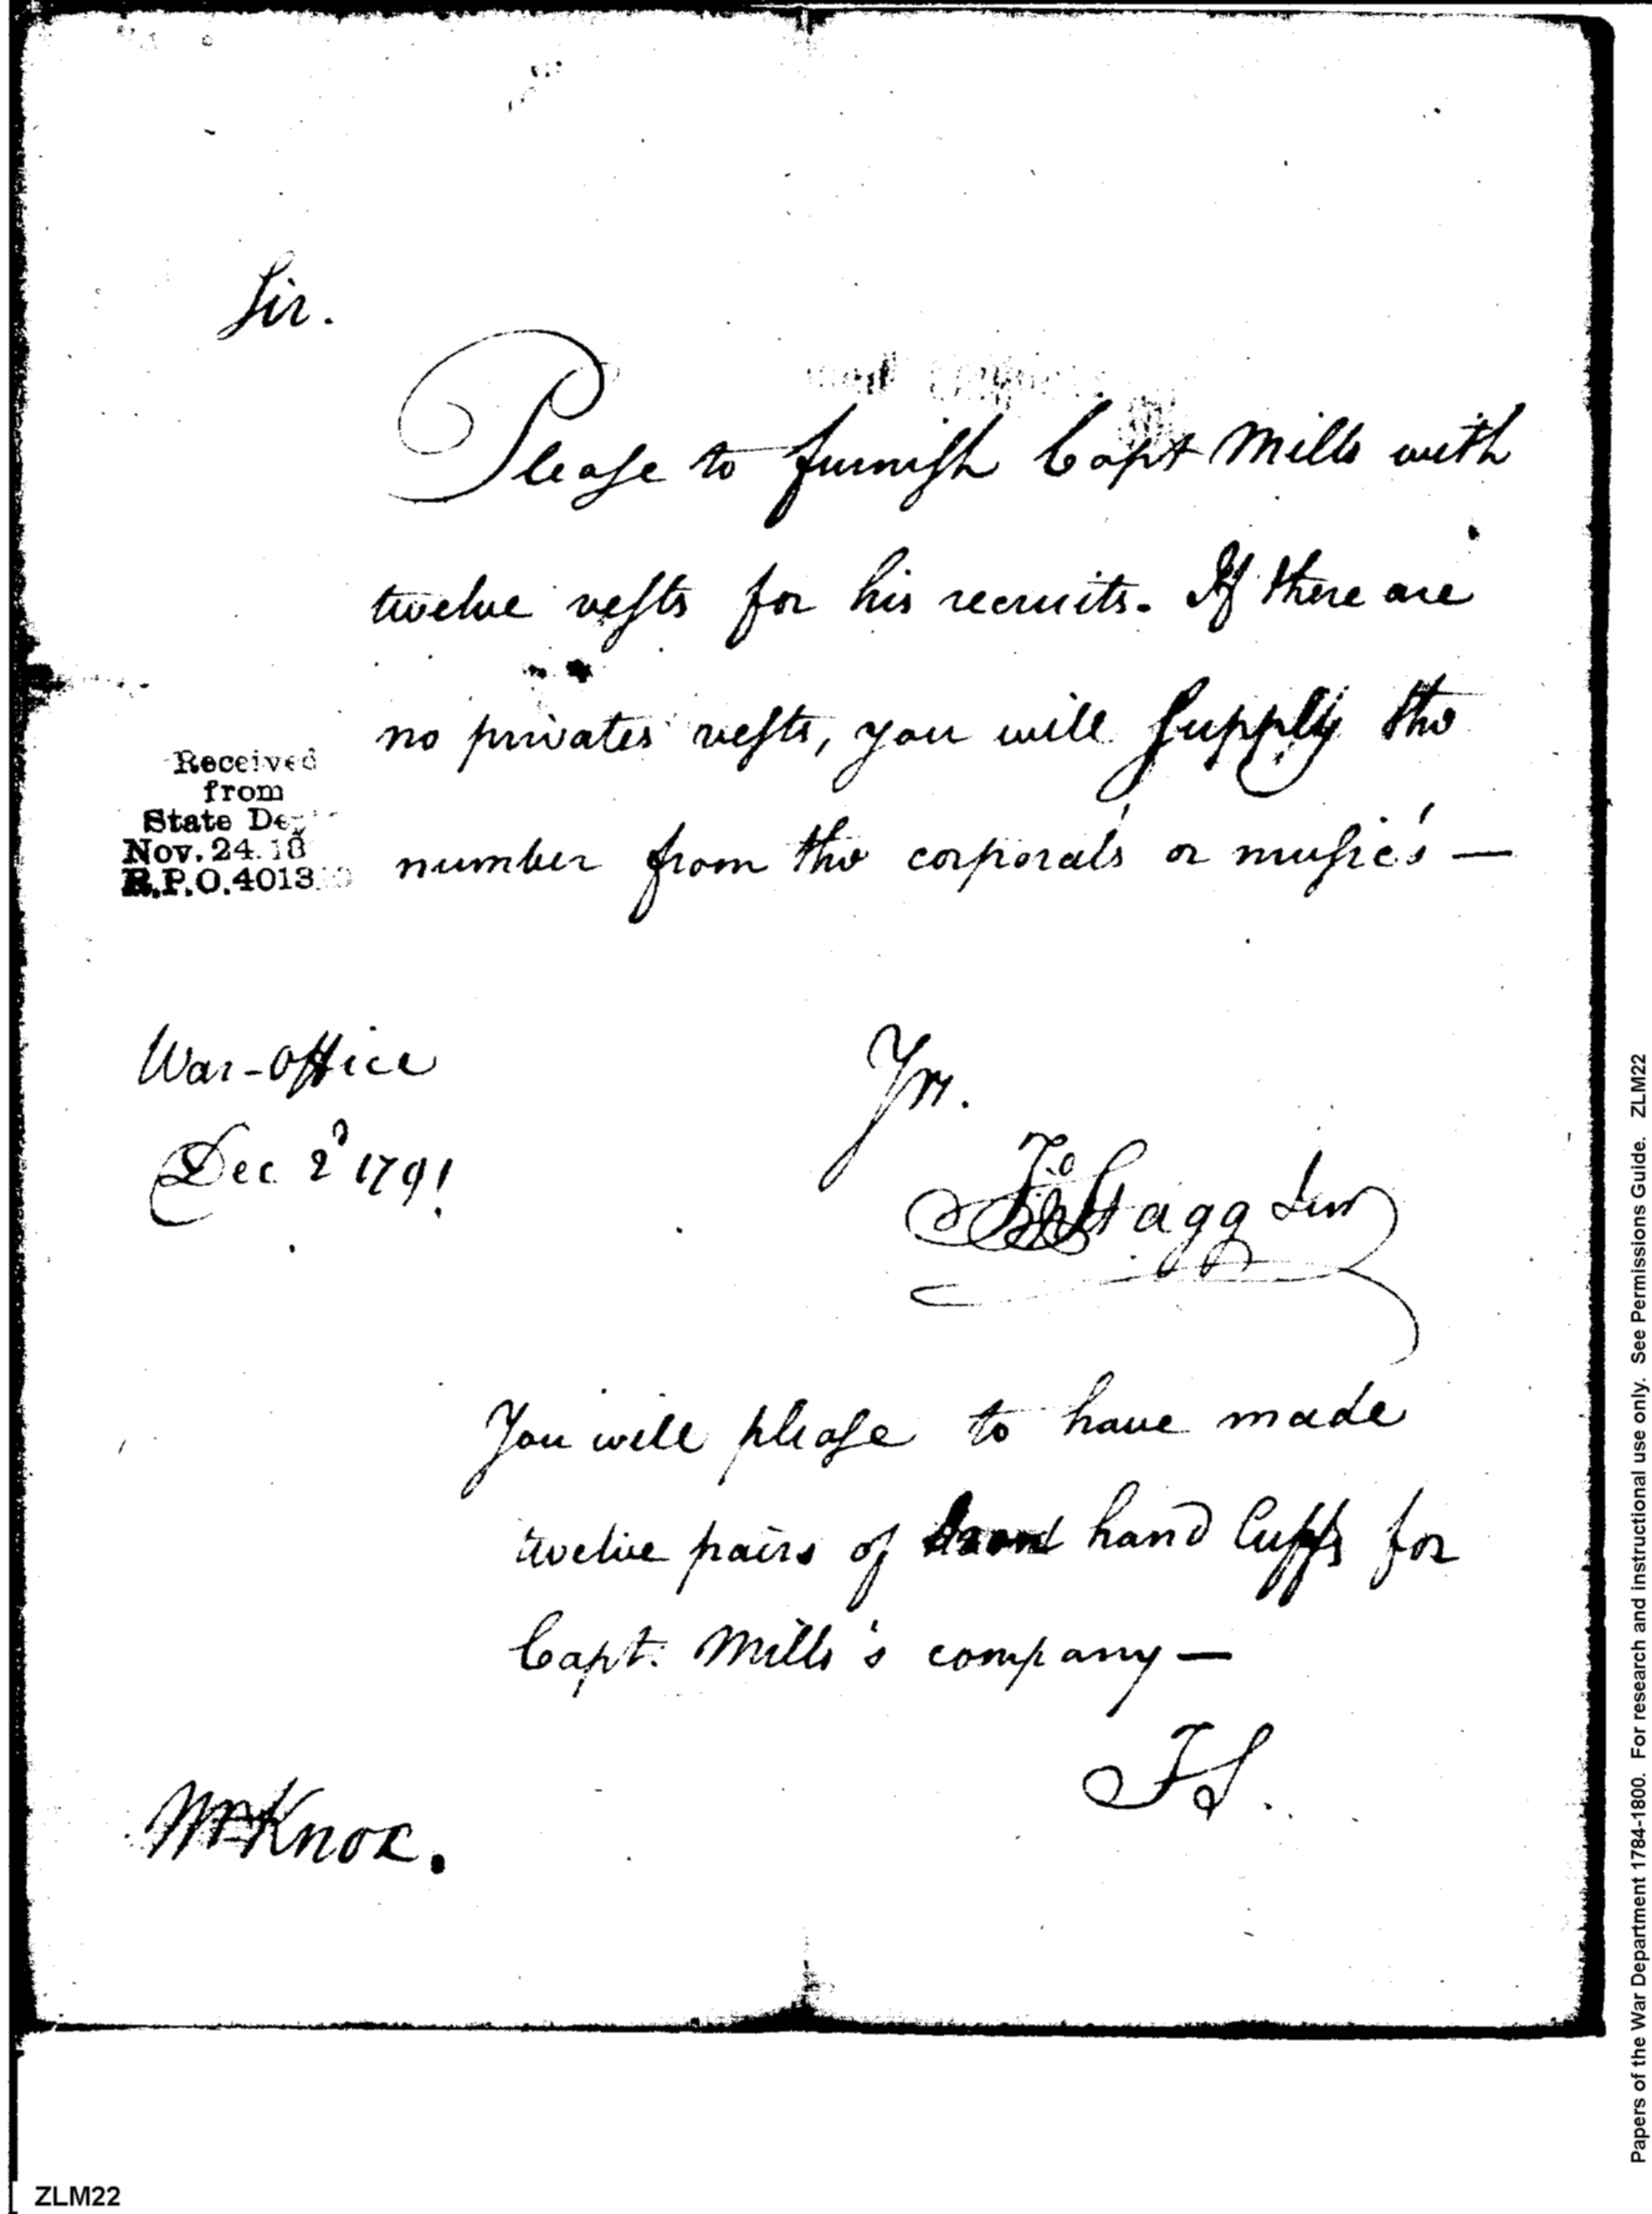 Sir.
Please to furnish Capt Mills with
twelve vests for his recruits. If there are
no privates vests, you will supply the
number from the corporal's or music's —
Received
from
State De
Nov. 24. 18
R.P.O. 4013
War-Office
Dec 2d 1791
Yrs.
Jno Stagg Junr
You will please to have made
twelve pairs of hand Cuffs for
Capt. Mills's company —
JS.
Mr Knox.
ZLM22
Papers of the War Department 1784-1800. For research and instructional use only. See Permissions Guide. ZLM22